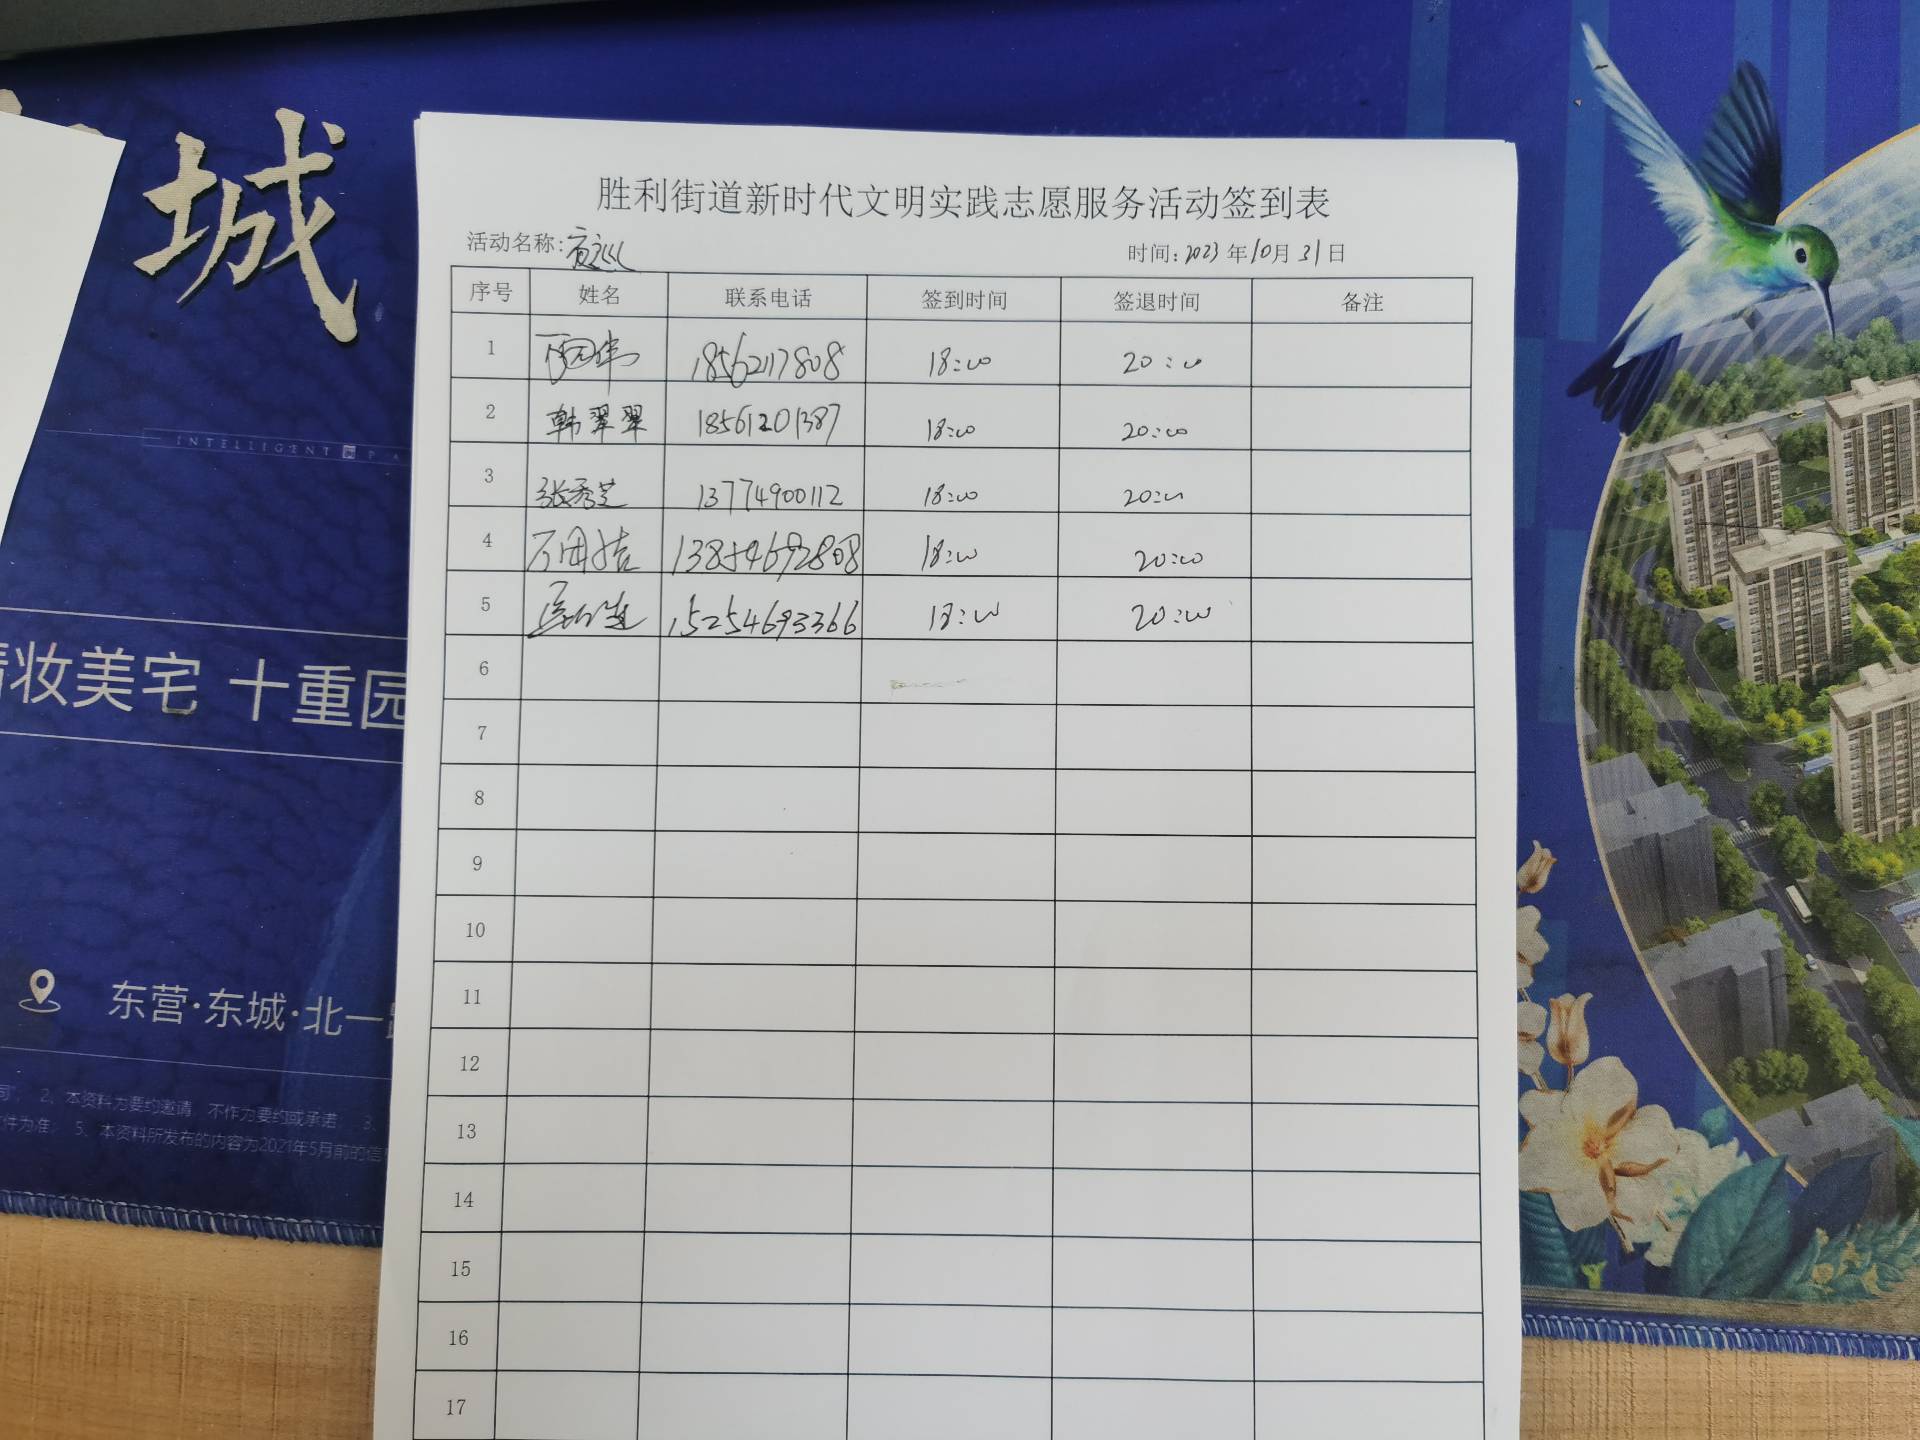 城
INTELLIGENT PA
精妆美宅 十重园
东营·东城·北一
2、本资料为要约邀请,不作为要约或承诺; 3、
件为准; 5、本资料所发布的内容为2021年5月前的信
胜利街道新时代文明实践志愿服务活动签到表
活动名称: 夜巡 时间: 2023 年 10 月 31 日
序号 姓名 联系电话 签到时间 签退时间 备注
1 18562117808 18:00 20:00
2 韩翠翠 18561201387 18:00 20:00
3 张秀芝 13774900112 18:00 20:00
4 13854692808 18:00 20:00
5 15254693366 18:00 20:00
6
7
8
9
10
11
12
13
14
15
16
17